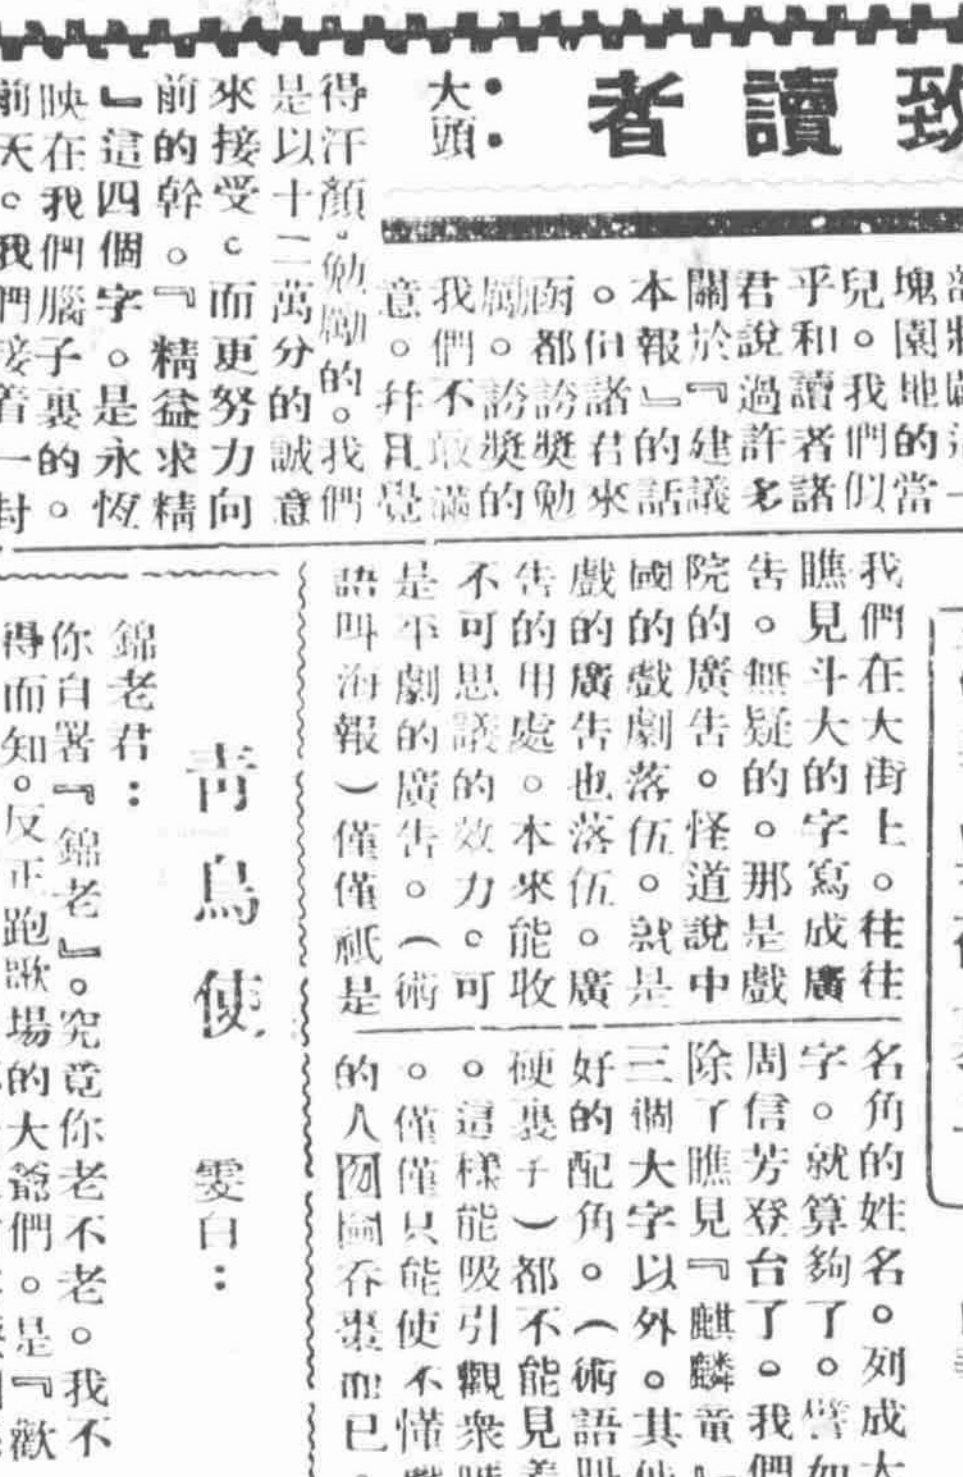 致讀者
：大頭
塊園地的當
兒。我們似
乎和讀者諸
君說過許多
關於『建議
本報』的話
。但諸君來
函都誇獎勉
勵。誇獎的
我們不敢滿
意。并且覺
得汗顏。勉勵的。我們
是以十二萬分的誠意
來接受。而更努力向
前的幹。『精益求精
』這四個字。是永恆
映在我們腦子裏的。
前天。我們接着一封
我們在大街上。往往
瞧見斗大的字寫成廣
告。無疑的。那是戲
院的廣告。怪道說中
國的戲劇落伍。就是
戲的廣告也落伍。廣
告的用處。本來能收
不可思議的效力。可
是平劇的廣告。（術
語叫海報）僅僅祇是
名角的姓名。列成大
字。就算夠了。譬如
周信芳登台了。我們
除了瞧見『麒麟童』
三個大字以外。其他
好的配角。（術語叫
硬裏子）都不能見着
。這樣能吸引觀衆嗎
。僅僅只能使不懂戲
的人囫圇吞棗而已。
青鳥使
雯白：
錦老君：
你自署『錦老』。究竟你老不老。我不
得而知。反正跑歌場的大爺們。是『歡